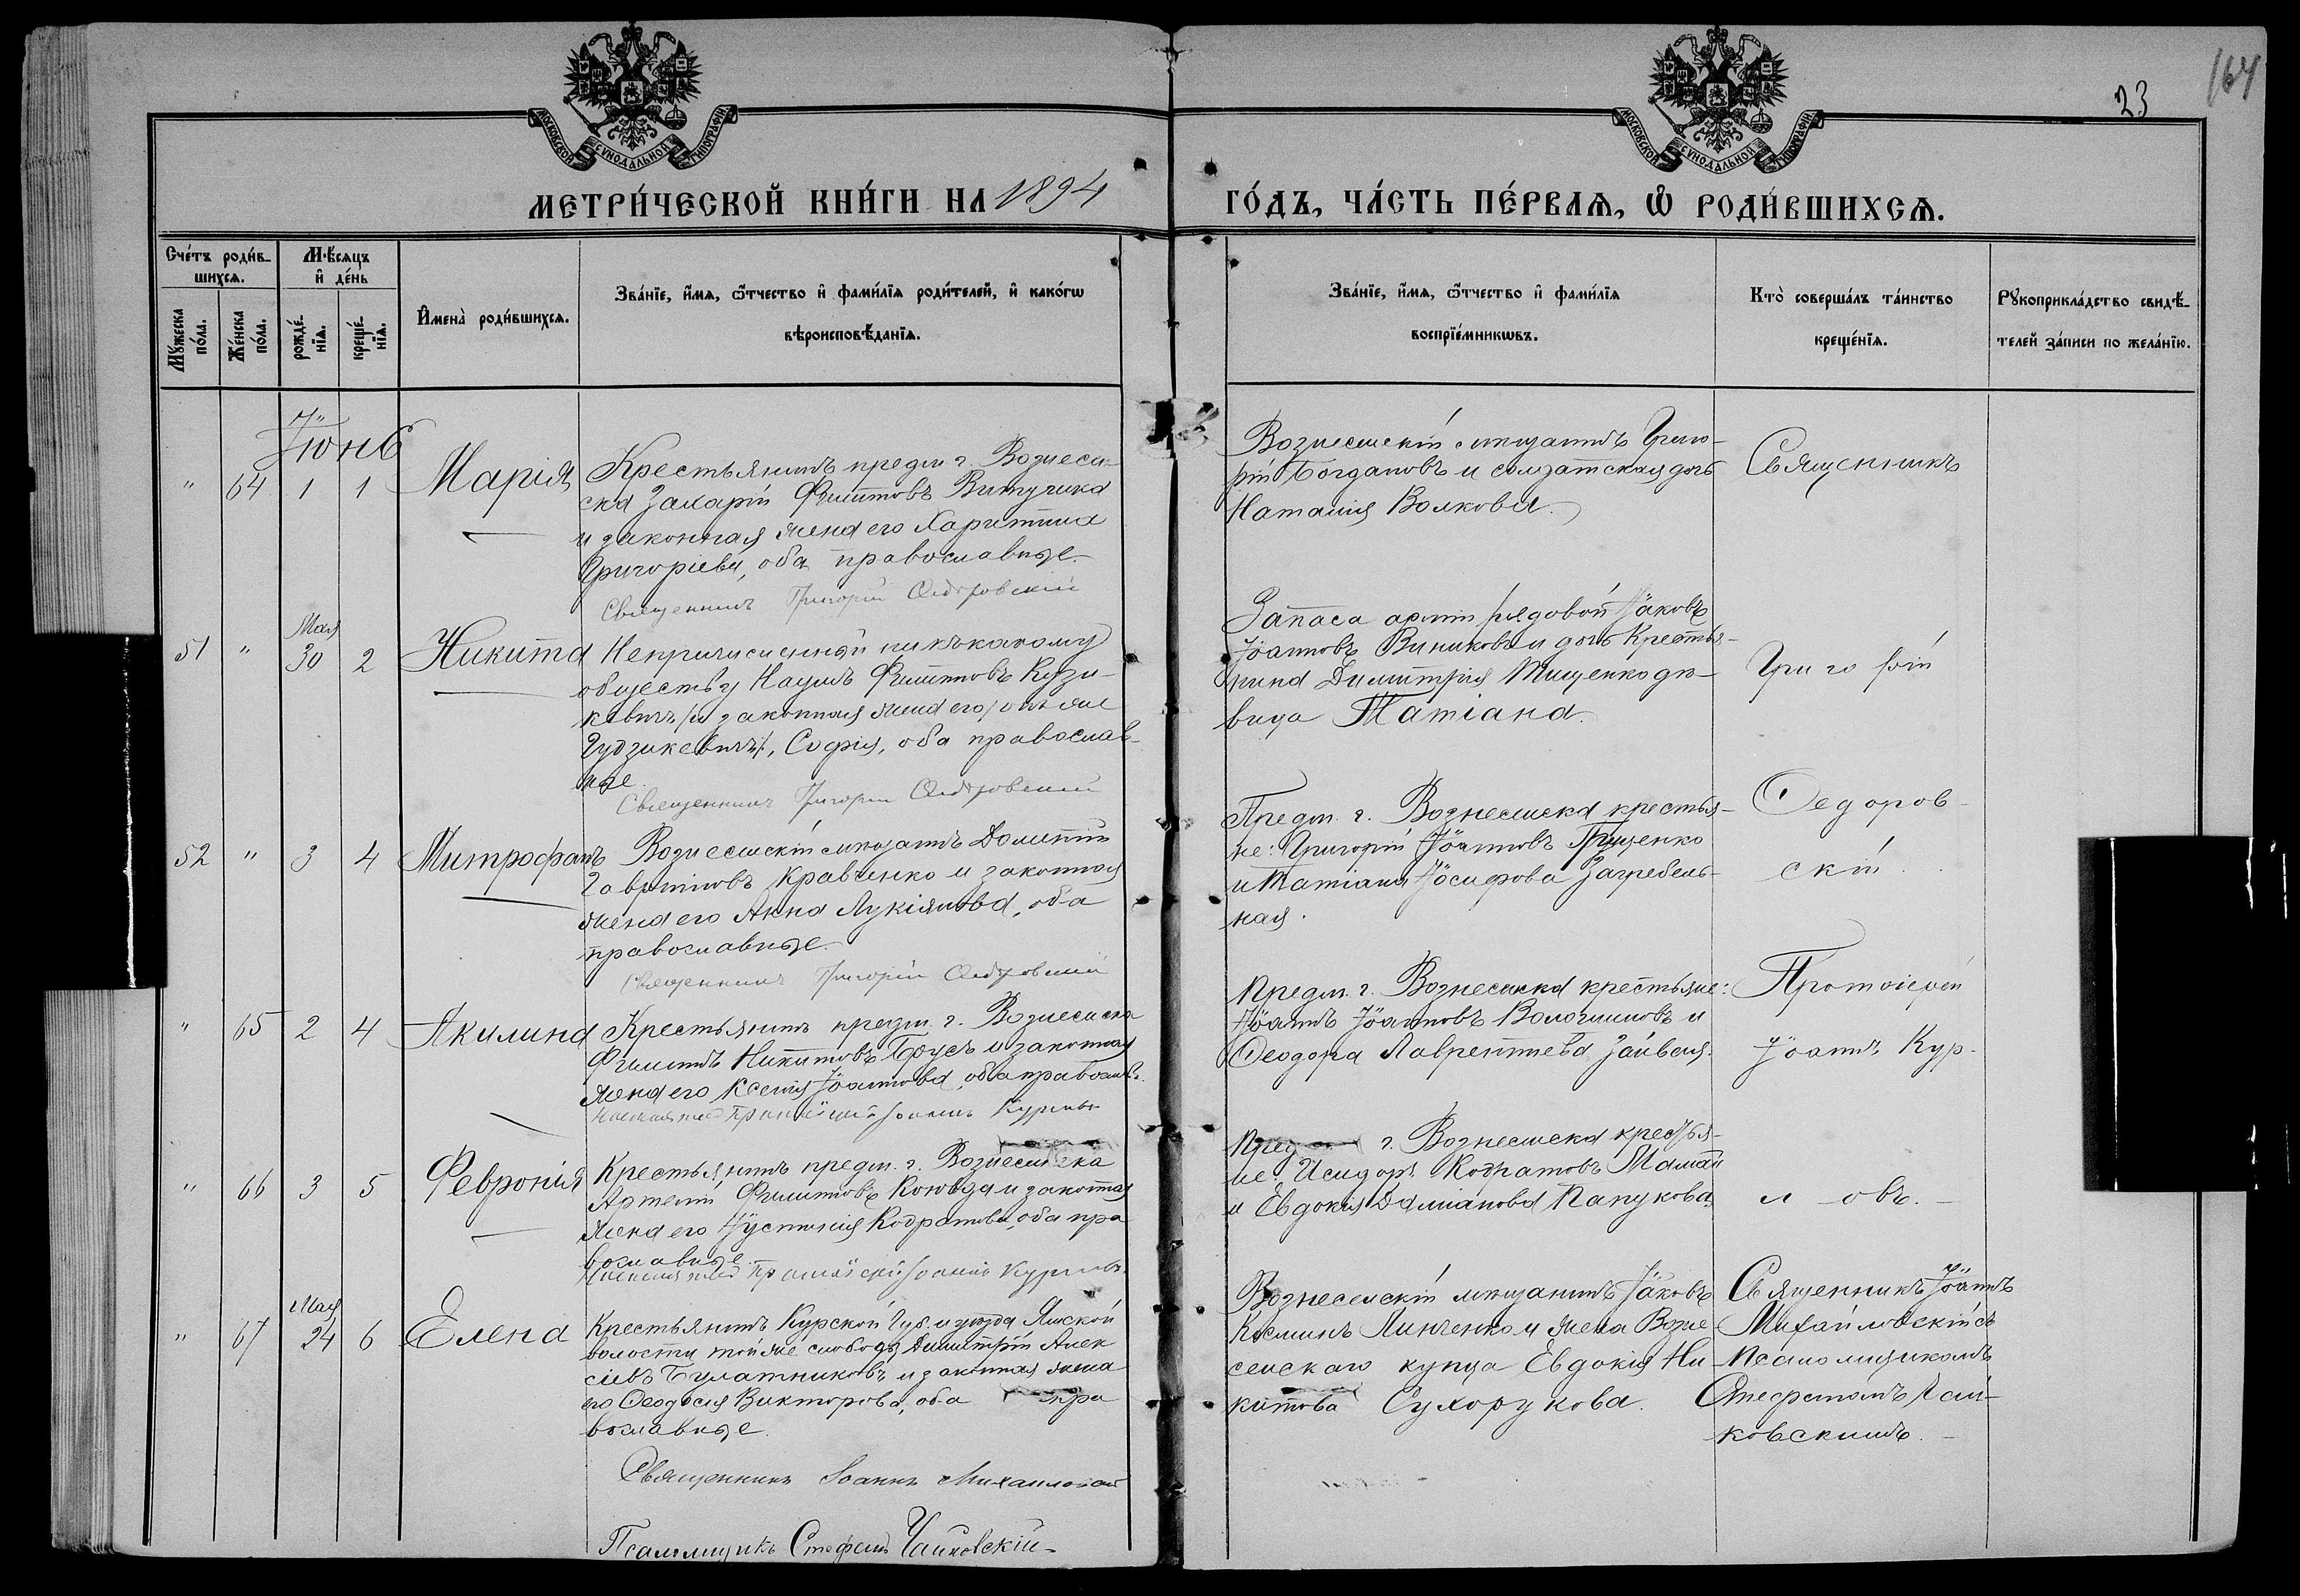 164
23
МОСКОВСКОЙ СѴНОДАЛЬНОЙ ТИПОГРАФІИ
МОСКОВСКОЙ СѴНОДАЛЬНОЙ ТИПОГРАФІИ
МЕТРИ́ЧЕСКОЙ КНИ́ГИ НА 1894 ГО́ДЪ, ЧА́СТЬ ПЕ́РВАѦ, Ѽ РОДИ́ВШИХСѦ.
Сче́тъ роди́в-
шихсѧ.
Мꙋ́жеска по́ла.
Же́нска по́ла.
Мѣ́сяцъ
и҆ де́нь
рожде́-
нїѧ.
креще́-
нїѧ.
И҆мена̀ роди́вшихсѧ.
Зва́нїе, и҆́мѧ, ѻ҆́тчество и҆ фами́лїѧ роди́телей, и҆ како́гѡ
вѣроисповѣ́данїѧ.
Зва́нїе, и҆́мѧ, ѻ҆́тчество и҆ фами́лїѧ
воспрїе́мникѡвъ.
Кто̀ соверша́лъ та́инство
креще́нїѧ.
Рꙋкоприкла́дство свидѣ́-
телей за́писи по жела́нїю.
Іюнь
" 64 1 1 Марія
Крестьянинъ предм. г. Вознесен-
ска Захарій Филипповъ
и законная жена его Харитина
Григоріева, оба православные.
Священникъ Григорій Ѳедоровскій
Вознесенскій мѣщанинъ Григо-
рій Богдановъ и солдатская дочь
Наталія Волкова.
Священникъ
51 " Мая 30 2 Никита
Непричисленный ни къ какому
обществу Наумъ Филипповъ Кузи-
кевичъ /и законная жена его/ онъ же
Гудзикевичъ/, Софія, оба православ-
ные.
Священникъ Григорій Ѳедоровскій
Запаса арміи рядовой Іаковъ
Іоанновъ Виниковъ и дочь Крестья-
нина Димитрія Тищенко дѣ-
вица Татіана.
Григорій
52 " 3 4 Митрофанъ
Вознесенскій мѣщанинъ
Кравченко и законная
жена его Анна Лукіянова, оба
православные.
Священникъ Григорій Ѳедоровскій
Предм. г. Вознесенска крестья-
не: Григорій Іоанновъ Грищенко
и Татіана Іосифова Загребель-
ная.
Ѳедоров-
скій.
" 65 2 4 Акилина
Крестьянинъ предм. г. Вознесенска
Филиппъ Никитовъ и законная
жена его Ксенія Іоаннова, оба правосл.
Протоіерей Іоаннъ Курловъ
Предм. г. Вознесенска крестьяне:
Іоаннъ Іоанновъ Волошиновъ и
Ѳеодора Лаврентіева Заивая.
Протоіерей
Іоаннъ Кур-
" 66 3 5 Февронія
Крестьянинъ предм. г. Вознесенска
Артемій Филипповъ и законная
жена его Іустинія Кодратова, оба пра-
вославные.
Протоіерей Іоаннъ Курловъ
Предм. г. Вознесенска крестья-
не: Исидоръ Кодратовъ Мамай
и Евдокія Даміанова Папукова.
л - овъ.
" 67 Мая 24 6 Елена
Крестьянинъ Курской Губ. и уѣзда Ямской
волости той же слободы Димитрій Алек-
сіевъ Булатниковъ и законная жена
его Ѳеодосія Викторова, оба пра-
вославные.
Священникъ Іоаннъ Михайловскій
Псаломщикъ Стефанъ Чайковскій
Вознесенскій мѣщанинъ Іаковъ
Косминъ Линченко и жена Возне-
сенскаго купца Евдокія Ни-
китова Сухорукова.
Священникъ Іоаннъ
Михайловскій съ
псаломщикомъ
Стефаномъ Чай-
ковскимъ.